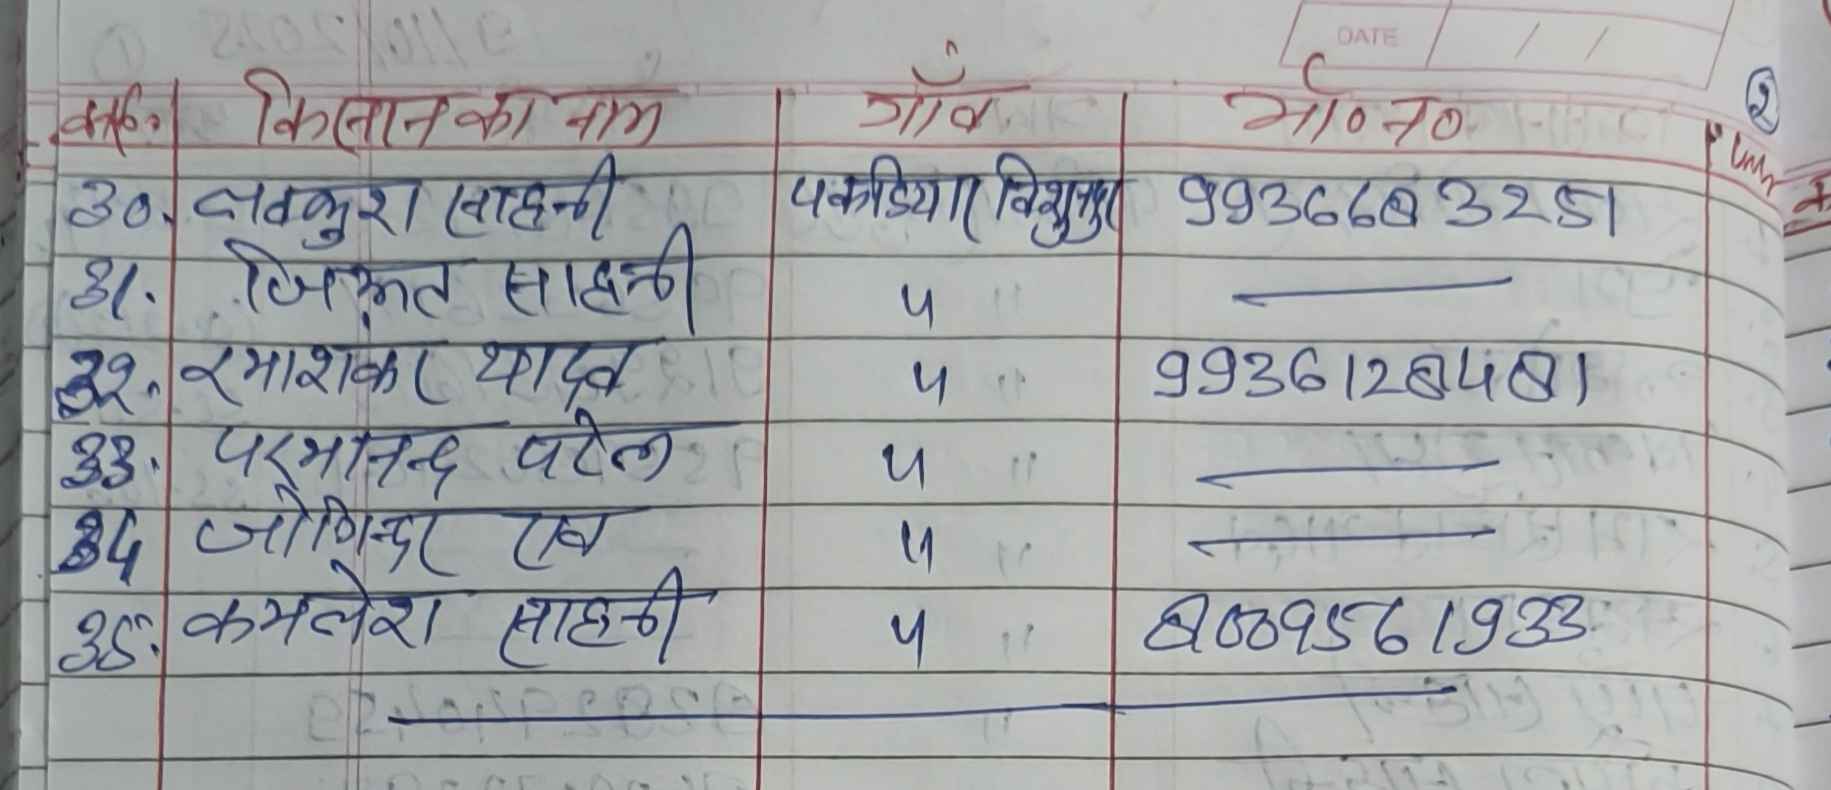 DATE / /
②
क्र०सं० किसान का नाम गाँव मो०न०
30. लवकुश साहनी पकडियार विशुनपुर 9936683251
31. साहनी " —
32. रमाशंकर यादव " 9936128481
33. परमानन्द पटेल " —
34 जोगिन्दर राव " —
35. कमलेश साहनी " 8009561933